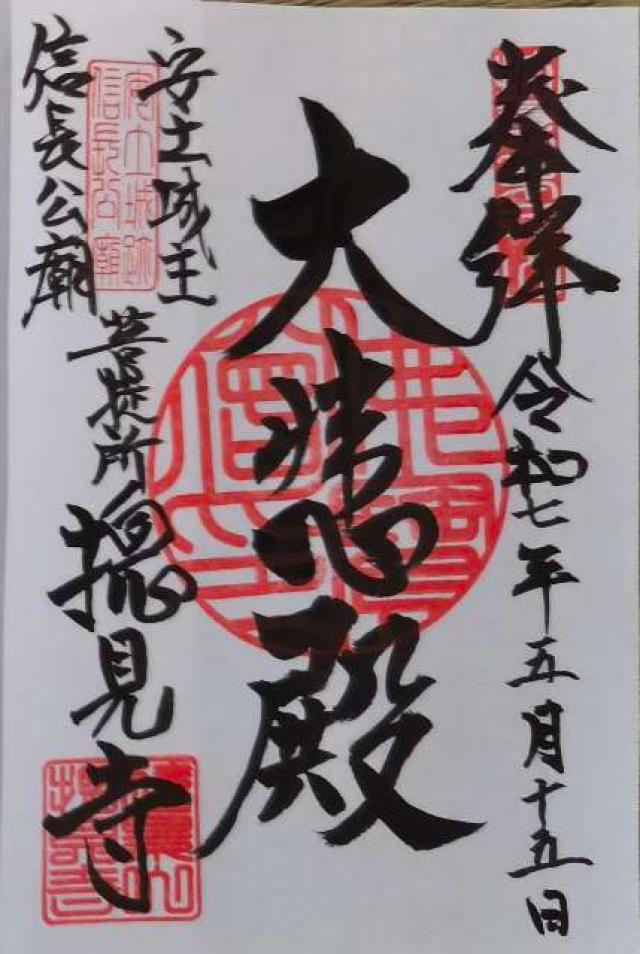 奉拝
令和七年五月十五日
大悲殿
安土城主
信長公廟
菩提所
摠見寺
安土城跡
信長公廟